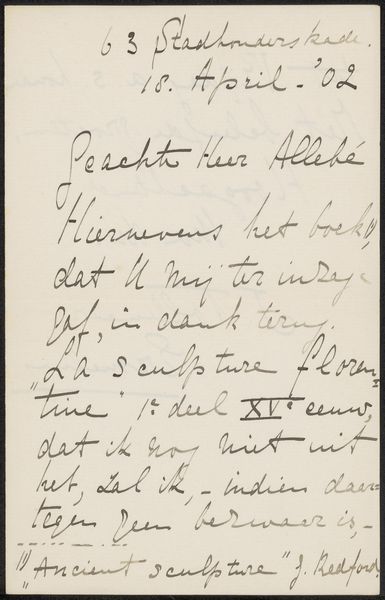 63 Stadhouderskade.
18. April - '02
Geachte Heer Allebé
Hiernevens het boek ¹⁾,
dat U mij ter inzage
gaf, in dank terug.
„La sculpture floren=
tine" 1e deel XVe eeuw,
dat ik nog niet uit
heb, zal ik, - indien daar=
tegen geen bezwaar is, -
¹⁾ „Ancient sculpture" J. Redford.